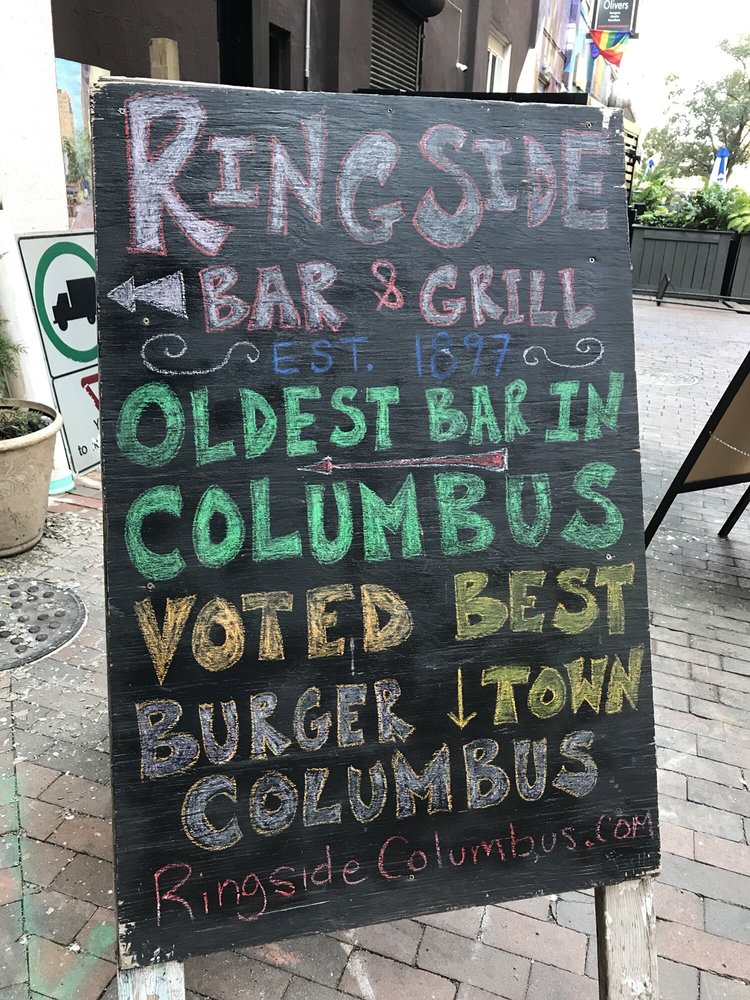 Olivers
RINGSIDE
BAR & GRILL
EST. 1897
OLDEST BAR IN
COLUMBUS
VOTED BEST
BURGER ↓TOWN
COLUMBUS
RingsideColumbus.com